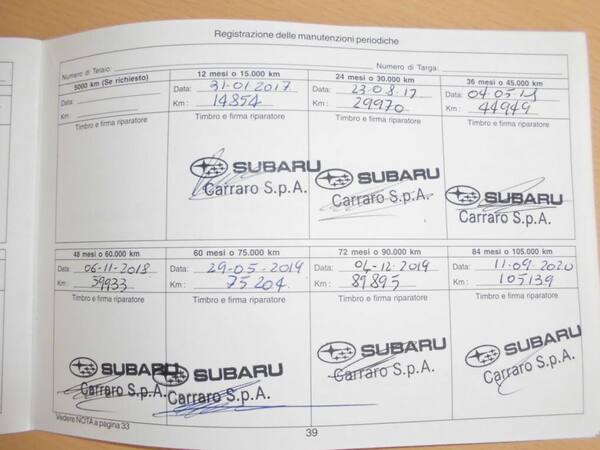 Registrazione delle manutenzioni periodiche
Numero di Telaio: Numero di Targa:
5000 km (Se richiesto) 12 mesi o 15.000 km 24 mesi o 30.000 km 36 mesi o 45.000 km
Data: Data: 31-01-2017 Data: 23-08-17 Data: 04-05-18
Km: Km: 14854 Km: 29970 Km: 44949
Timbro e firma riparatore Timbro e firma riparatore Timbro e firma riparatore Timbro e firma riparatore
SUBARU SUBARU SUBARU
Carraro S.p.A. Carraro S.p.A. Carraro S.p.A.
48 mesi o 60.000 km 60 mesi o 75.000 km 72 mesi o 90.000 km 84 mesi o 105.000 km
Data: 06-11-2018 Data: 29-05-2019 Data: 04-12-2019 Data: 11-09-2020
Km: 59933 Km: 75204 Km: 89895 Km: 105139
Timbro e firma riparatore Timbro e firma riparatore Timbro e firma riparatore Timbro e firma riparatore
SUBARU SUBARU SUBARU SUBARU
Carraro S.p.A. Carraro S.p.A. Carraro S.p.A. Carraro S.p.A.
Vedere NOTA a pagina 33
39